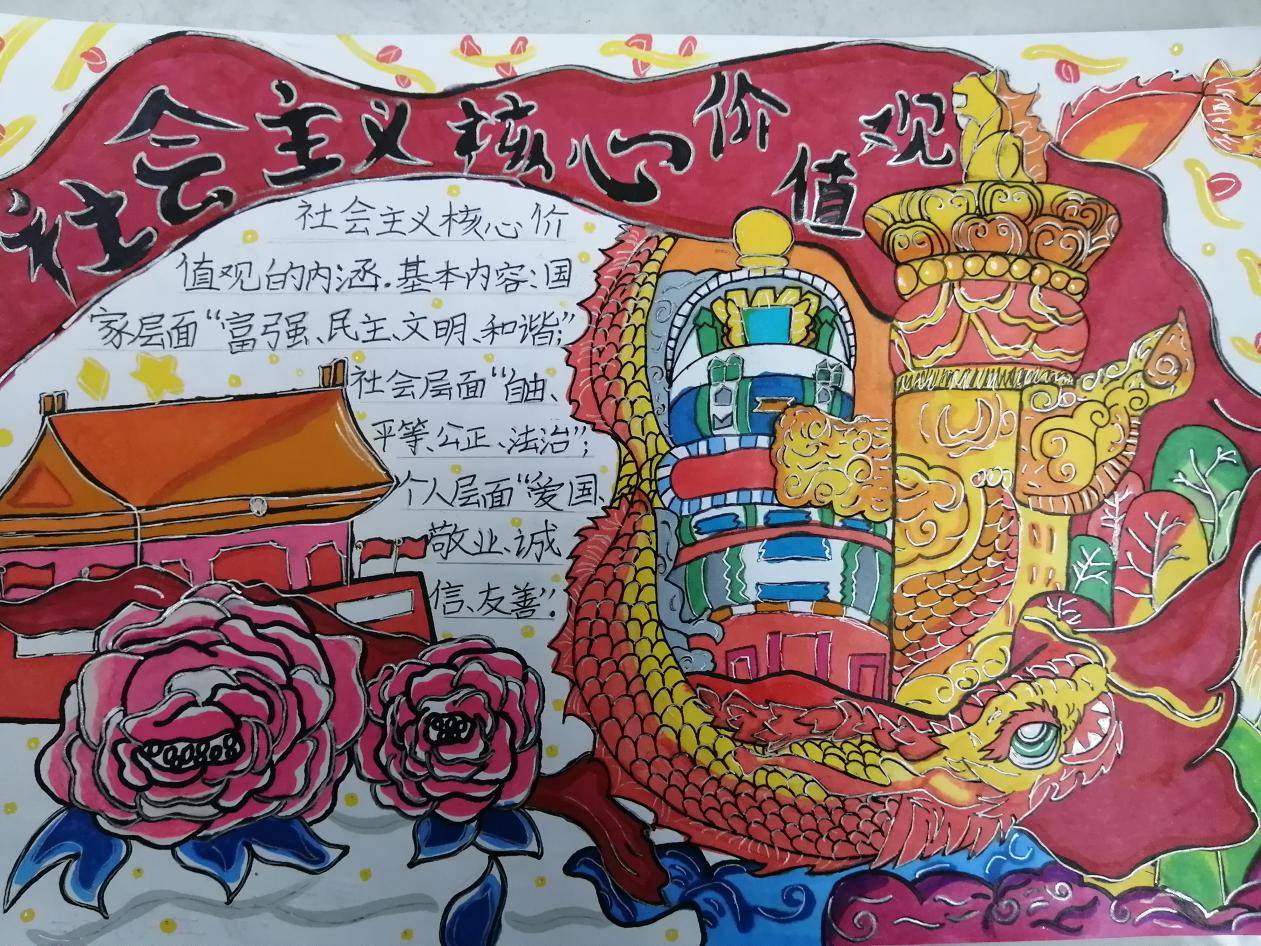 社会主义核心价值观
社会主义核心价
值观的内涵.基本内容:国
家层面“富强、民主、文明、和谐;”
社会层面“自由、
平等、公正、法治”;
个人层面“爱国、
敬业、诚
信、友善”.